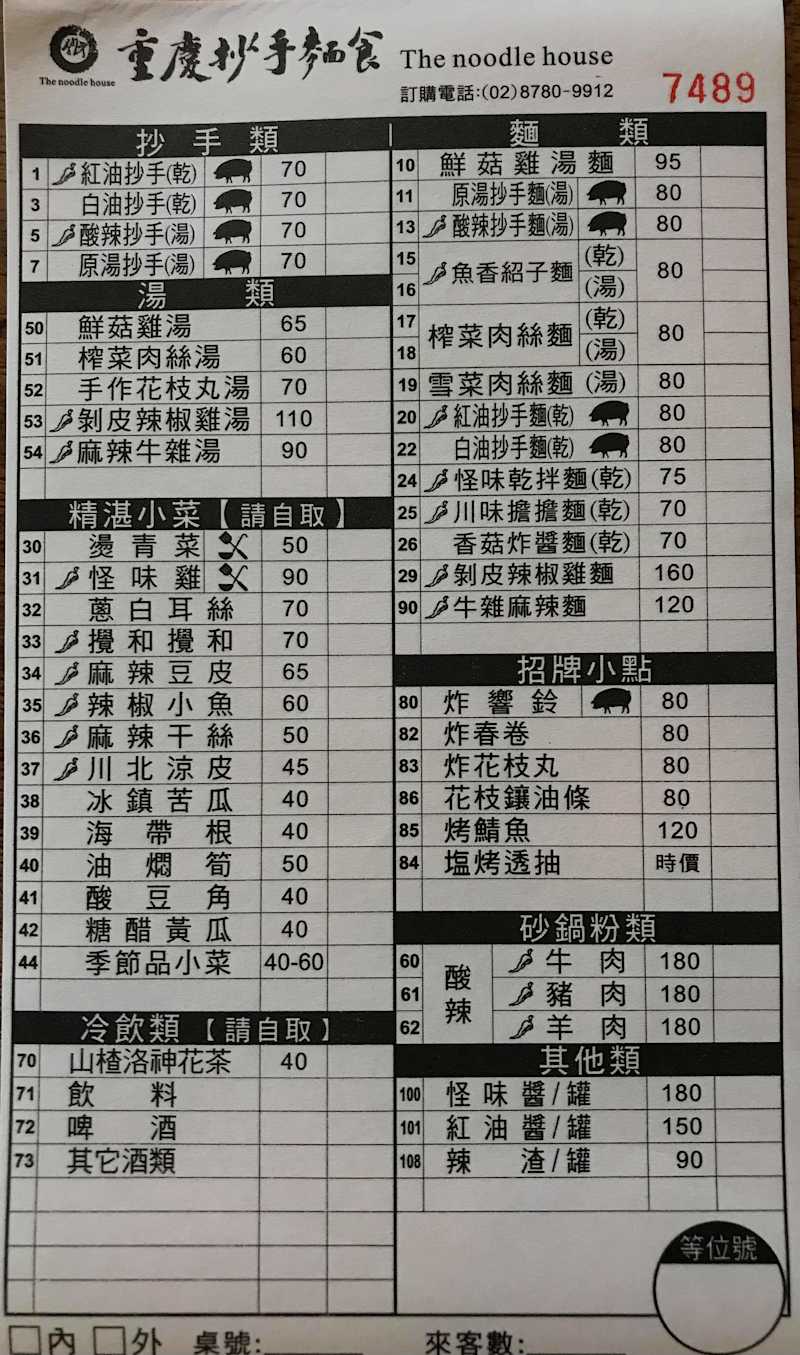 重慶抄手麵食 The noodle house
The noodle house
訂購電話:(02)8780-9912
7489
抄手類
1 紅油抄手(乾) 70
3 白油抄手(乾) 70
5 酸辣抄手(湯) 70
7 原湯抄手(湯) 70
湯類
50 鮮菇雞湯 65
51 榨菜肉絲湯 60
52 手作花枝丸湯 70
53 剝皮辣椒雞湯 110
54 麻辣牛雜湯 90
精湛小菜【請自取】
30 燙青菜 50
31 怪味雞 90
32 蔥白耳絲 70
33 攪和攪和 70
34 麻辣豆皮 65
35 辣椒小魚 60
36 麻辣干絲 50
37 川北涼皮 45
38 冰鎮苦瓜 40
39 海帶根 40
40 油燜筍 50
41 酸豆角 40
42 糖醋黃瓜 40
44 季節品小菜 40-60
冷飲類【請自取】
70 山楂洛神花茶 40
71 飲料
72 啤酒
73 其它酒類
麵類
10 鮮菇雞湯麵 95
11 原湯抄手麵(湯) 80
13 酸辣抄手麵(湯) 80
15 (乾)
魚香紹子麵 80
16 (湯)
17 (乾)
榨菜肉絲麵 80
18 (湯)
19 雪菜肉絲麵(湯) 80
20 紅油抄手麵(乾) 80
22 白油抄手麵(乾) 80
24 怪味乾拌麵(乾) 75
25 川味擔擔麵(乾) 70
26 香菇炸醬麵(乾) 70
29 剝皮辣椒雞麵 160
90 牛雜麻辣麵 120
招牌小點
80 炸響鈴 80
82 炸春卷 80
83 炸花枝丸 80
86 花枝鑲油條 80
85 烤鯖魚 120
84 塩烤透抽 時價
砂鍋粉類
酸辣
60 牛肉 180
61 豬肉 180
62 羊肉 180
其他類
100 怪味醬/罐 180
101 紅油醬/罐 150
108 辣渣/罐 90
等位號
內 外 桌號: 來客數: